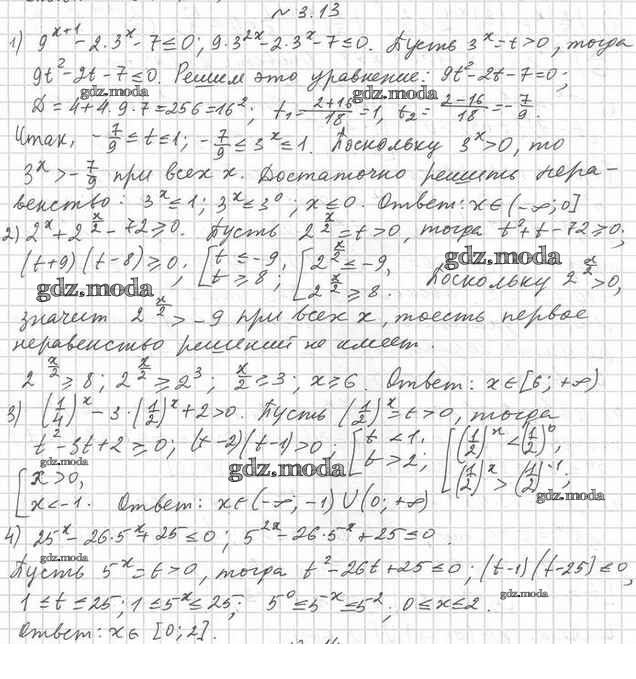 № 3.13
1) 9^(x+1) - 2·3^x - 7 ≤ 0; 9·3^(2x) - 2·3^x - 7 ≤ 0. Пусть 3^x = t > 0, тогда
9t² - 2t - 7 ≤ 0. Решим это уравнение: 9t² - 2t - 7 = 0;
gdz.moda
gdz.moda
D = 4 + 4·9·7 = 256 = 16²; t₁ = (2+16)/18 = 1, t₂ = (2-16)/18 = -7/9.
Итак, -7/9 ≤ t ≤ 1; -7/9 ≤ 3^x ≤ 1. Поскольку 3^x > 0, то
3^x > -7/9 при всех x. Достаточно решить нера-
венство: 3^x ≤ 1; 3^x ≤ 3^0; x ≤ 0. Ответ: x ∈ (-∞; 0]
2) 2^x + 2^(x/2) - 72 ≥ 0. Пусть 2^(x/2) = t > 0, тогда t² + t - 72 ≥ 0;
(t+9)(t-8) ≥ 0; [t ≤ -9, t ≥ 8; [2^(x/2) ≤ -9, 2^(x/2) ≥ 8. Поскольку 2^(x/2) > 0,
gdz.moda
gdz.moda
значит 2^(x/2) > -9 при всех x, тоесть первое
неравенство решений не имеет.
2^(x/2) ≥ 8; 2^(x/2) ≥ 2³; x/2 ≥ 3; x ≥ 6. Ответ: x ∈ [6; +∞)
3) (1/4)^x - 3·(1/2)^x + 2 > 0. Пусть (1/2)^x = t > 0, тогда
t² - 3t + 2 ≥ 0; (t-2)(t-1) > 0; [t < 1, t > 2; [(1/2)^x < (1/2)^0, (1/2)^x > (1/2)^-1;
gdz.moda
gdz.moda
gdz.moda
[x > 0, x < -1. Ответ: x ∈ (-∞; -1) ∪ (0; +∞)
4) 25^x - 26·5^x + 25 ≤ 0; 5^(2x) - 26·5^x + 25 ≤ 0.
gdz.moda
Пусть 5^x = t > 0, тогда t² - 26t + 25 ≤ 0; (t-1)(t-25) ≤ 0,
1 ≤ t ≤ 25; 1 ≤ 5^x ≤ 25; 5^0 ≤ 5^x ≤ 5^2; 0 ≤ x ≤ 2.
gdz.moda
Ответ: x ∈ [0; 2].